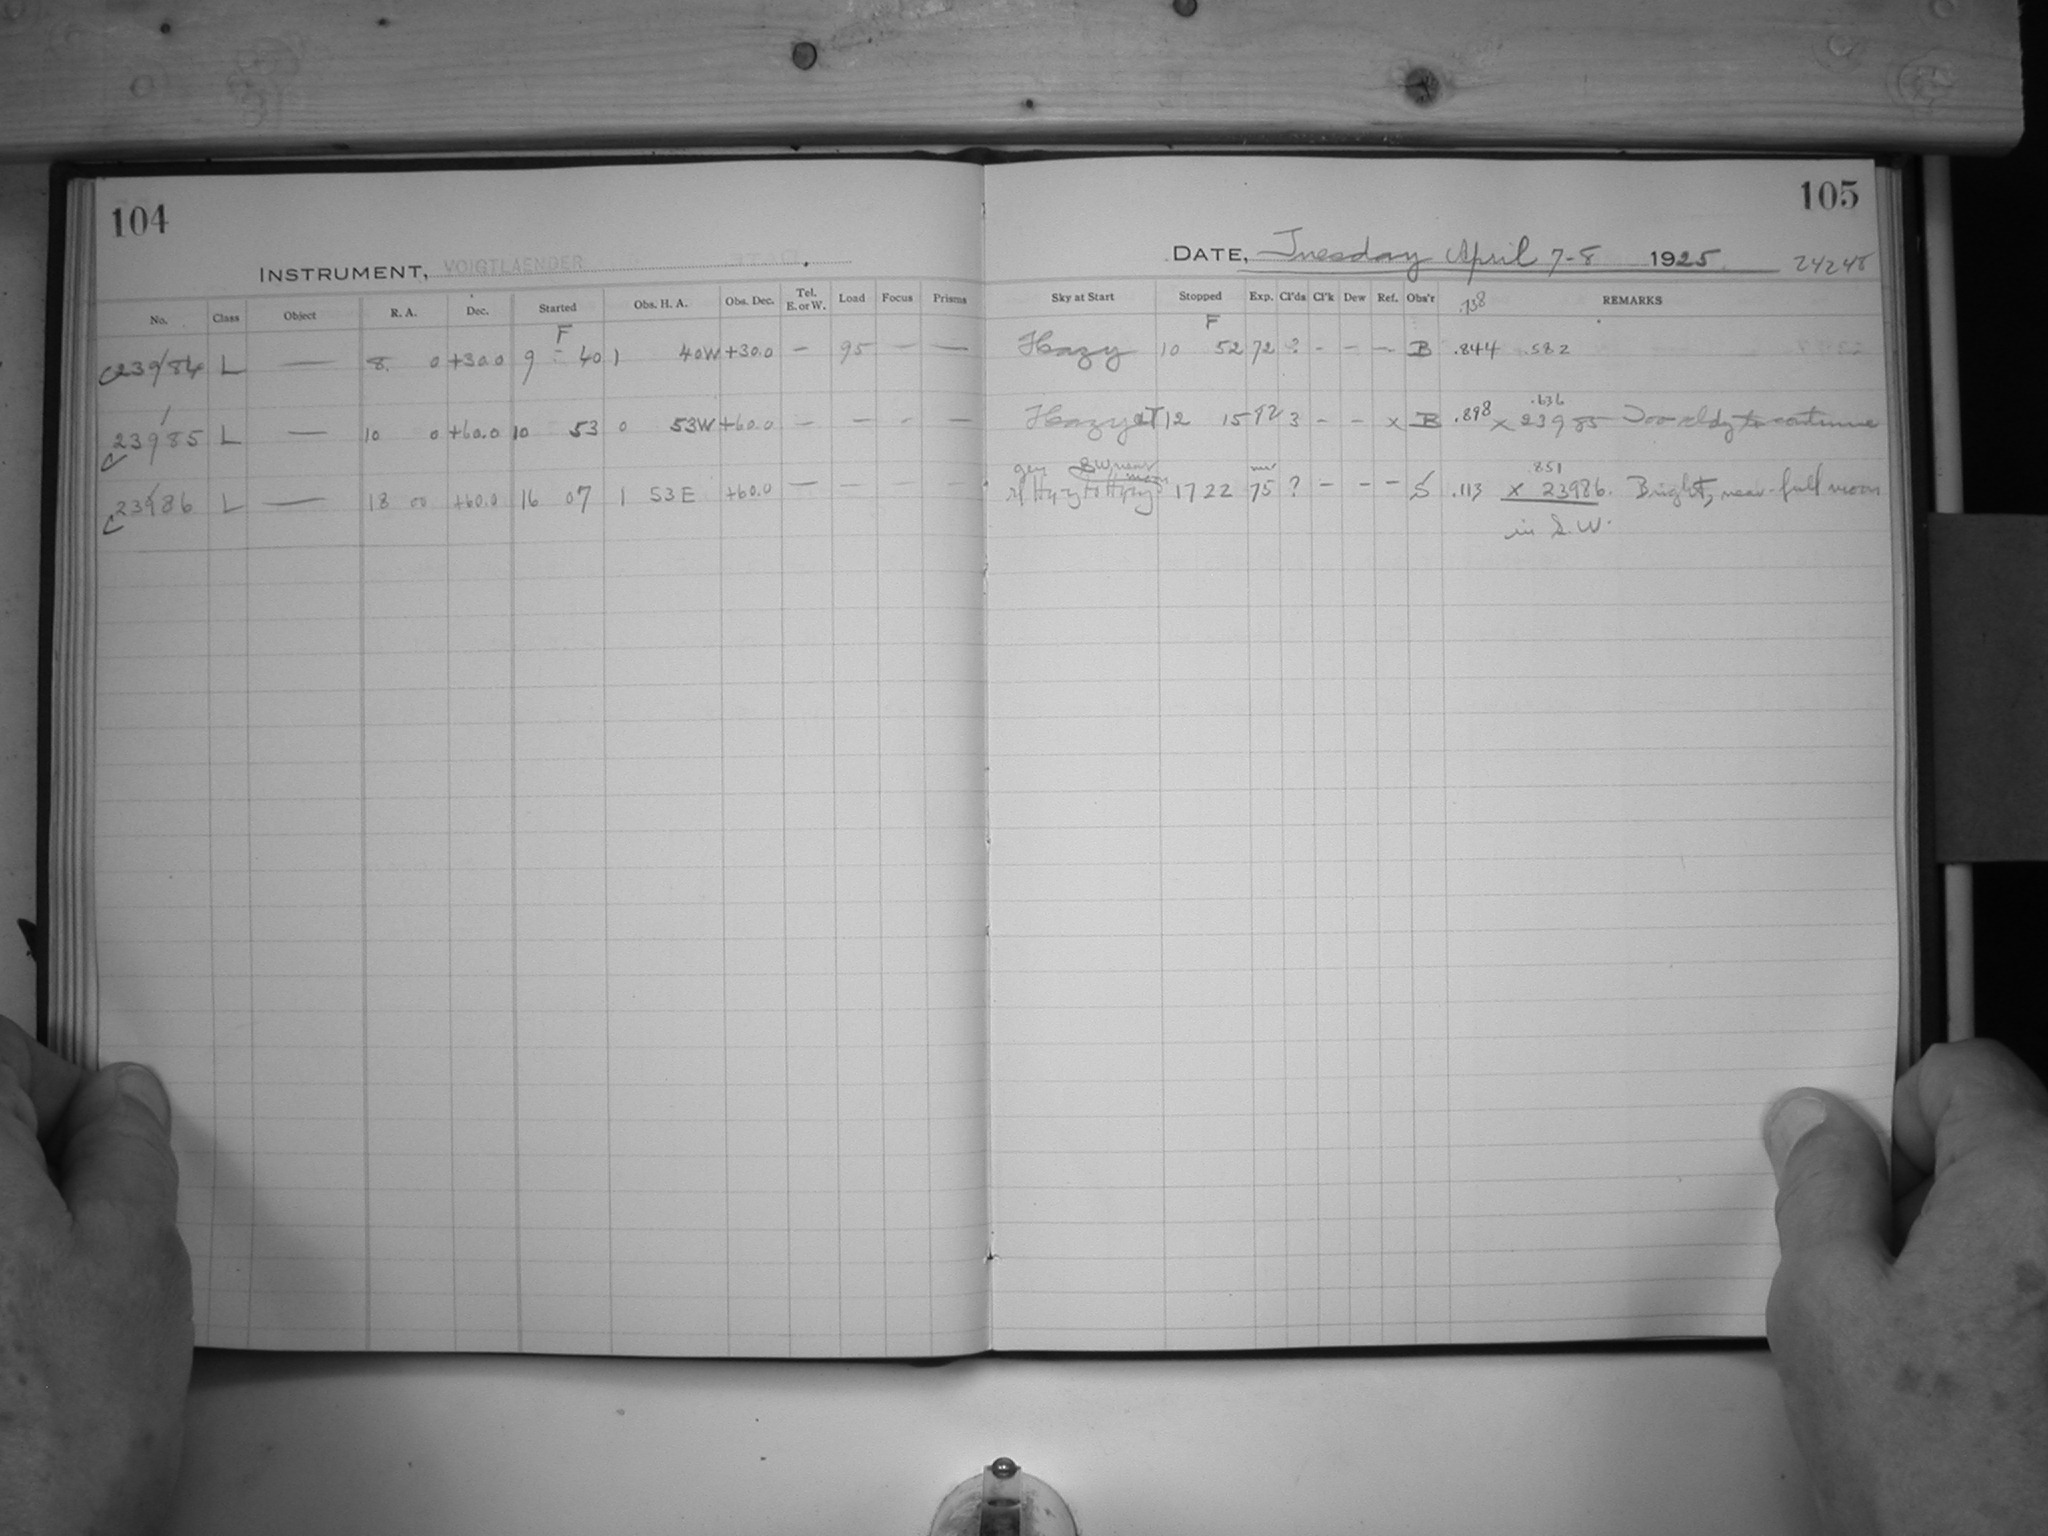 104
INSTRUMENT, VOIGTLAENDER
No. Class Object R. A. Dec. Started Obs. H. A. Obs. Dec. Tel. E. or W. Load Focus Prisms
F
23984 L — 8 0 +30.0 9 40 1 40W +30.0 — 95 — —
23985 L — 10 0 +60.0 10 53 0 53W +60.0 — — - —
23986 L — 18 00 +60.0 16 07 1 53E +60.0 — — — —
105
DATE, Tuesday April 7-8 1925 24248
Sky at Start Stopped Exp. Cl'ds Cl'k Dew Ref. Obs'r .738 REMARKS
F
Hazy 10 52 72 ? - - — B .844 .582
.636
Hazy 12 15 92 3 - - x B .898 x 23985 Too cldy to continue
S W near moon .851
to 17 22 75 ? - - - S .113 x 23986. Bright, near-full moon
in S.W.